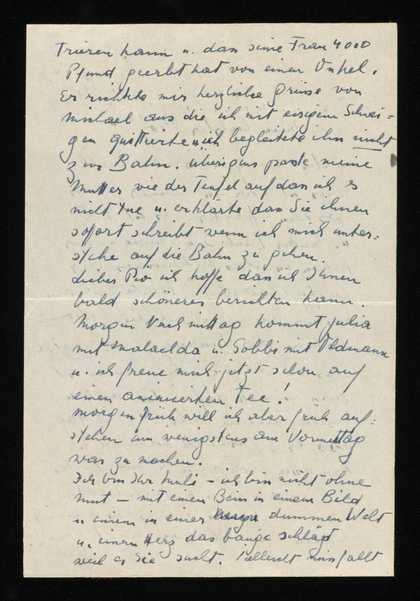 trieren kann u. dass seine Frau 4000
Pfund geerbt hat von einem Onkel.
Er richtete mir herzliche Grüsse von
Michael aus die ich mit eisigem Schwei-
gen quittierte u. ich begleitete ihn nicht
zur Bahn. Übrigens passte meine
Mutter wie der Teufel auf dass ich es
nicht tue u. erklärte dass Sie ihnen
sofort schreibt wenn ich mich unter-
stehe auf die Bahn zu gehen.
Lieber Pio ich hoffe dass ich Ihnen
bald schöneres berichten kann.
Morgen Nachmittag kommt Julia
mit u. Gobbi mit
u. ich freue mich jetzt schon auf
einen animierten Tee!
Morgen früh will ich aber früh auf-
stehen um wenigstens am Vormittag
was zu machen.
Ich bin Ihr – ich bin nicht ohne
Mut – mit einem Bein in einem Bild
u. einem in einer dummen Welt
u. einem Herz das bange schlägt
weil es Sie sucht. Vielleicht